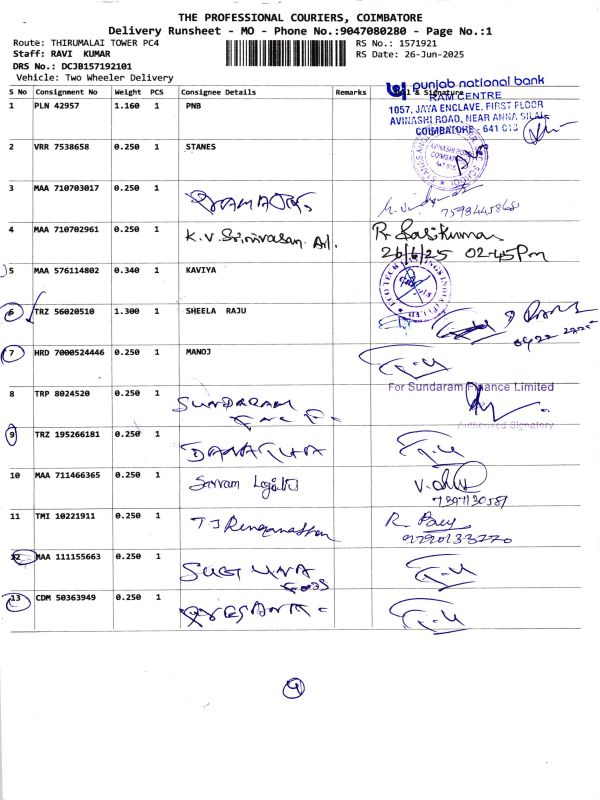 THE PROFESSIONAL COURIERS, COIMBATORE
Delivery Runsheet - MO - Phone No.:9047080280 - Page No.:1
Route: THIRUMALAI TOWER PC4 RS No.: 1571921
Staff: RAVI KUMAR RS Date: 26-Jun-2025
DRS No.: DCJB157192101
Vehicle: Two Wheeler Delivery
S No Consignment No Weight PCS Consignee Details Remarks Seal & Signature
punjab national bank
RAM CENTRE
1057, JAYA ENCLAVE, FIRST FLOOR
AVINASHI ROAD, NEAR ANNA SILAI,
COIMBATORE - 641 018
1 PLN 42957 1.160 1 PNB
2 VRR 7538658 0.250 1 STANES
3 MAA 710703017 0.250 1
7598445868
4 MAA 710702961 0.250 1 K.V. Srinivasan Avl. R Sasikumar
26/6/25 02:45Pm
5 MAA 576114802 0.340 1 KAVIYA
6 TRZ 56020510 1.300 1 SHEELA RAJU
7 HRD 7000524446 0.250 1 MANOJ
For Sundaram Finance Limited
8 TRP 8024520 0.250 1 SUNDARAM
Authorised Signatory
9 TRZ 195266181 0.250 1
10 MAA 711466365 0.250 1
7397130581
11 TMI 10221911 0.250 1 TJ Renganathan
12 MAA 111155663 0.250 1 SUGUNA
13 CDM 50363949 0.250 1